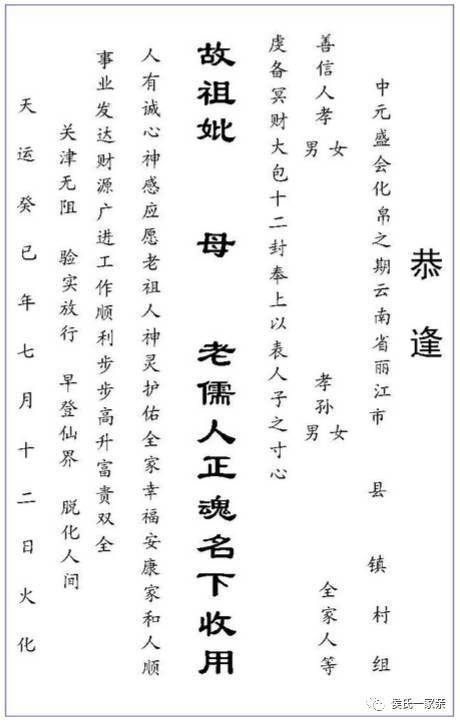 恭逢
中元盛会化帛之期云南省丽江市 县 镇 村 组
善信人孝 男 女 孝孙 男 女 全家人等
虔备冥财大包十二封奉上以表人子之寸心
故祖妣 母 老儒人正魂名下收用
人有诚心神感应愿老祖人神灵护佑全家幸福安康家和人顺
事业发达财源广进工作顺利步步高升富贵双全
关津无阻 验实放行 早登仙界 脱化人间
天运癸巳年七月十二日火化
侯氏一家亲